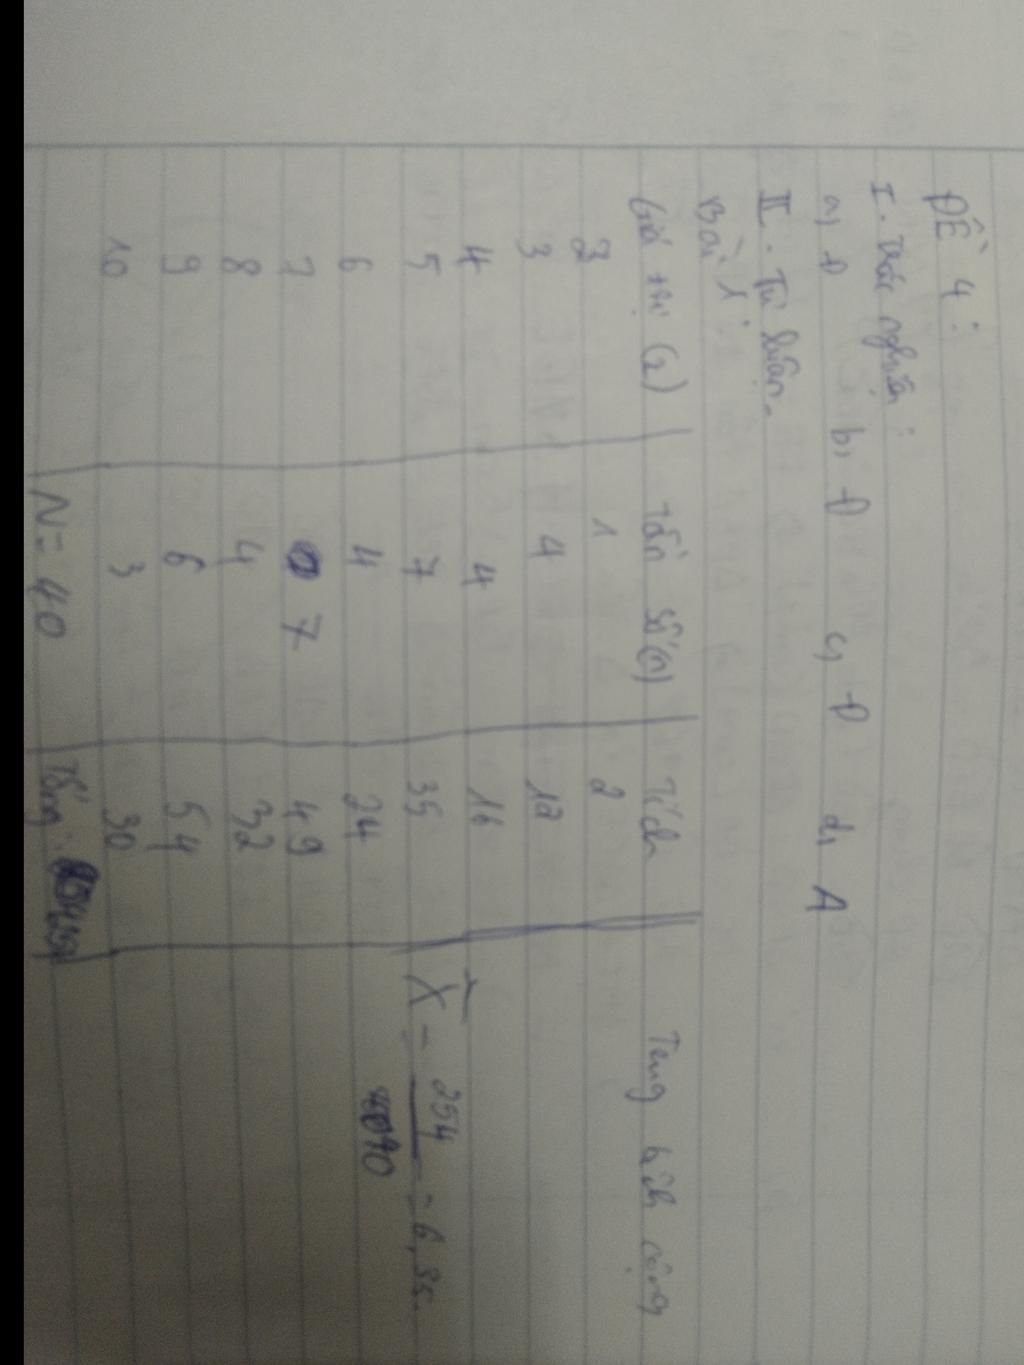 ĐỀ 4:
I. Trắc nghiệm:
a, D b, D c, D d, A
II. Tự luận.
Bài 1:
Giá trị (x) Tần số (n) Tích Trung bình cộng
2 1 2
3 4 12
4 4 16
5 7 35 X̄ = 254/40 = 6,35.
6 4 24
7 7 49
8 4 32
9 6 54
10 3 30
N = 40 Tổng: 254